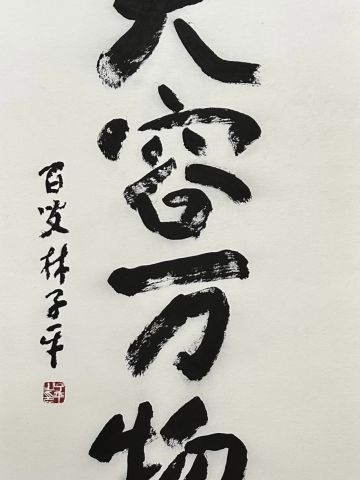 大容万物
百叟林子平